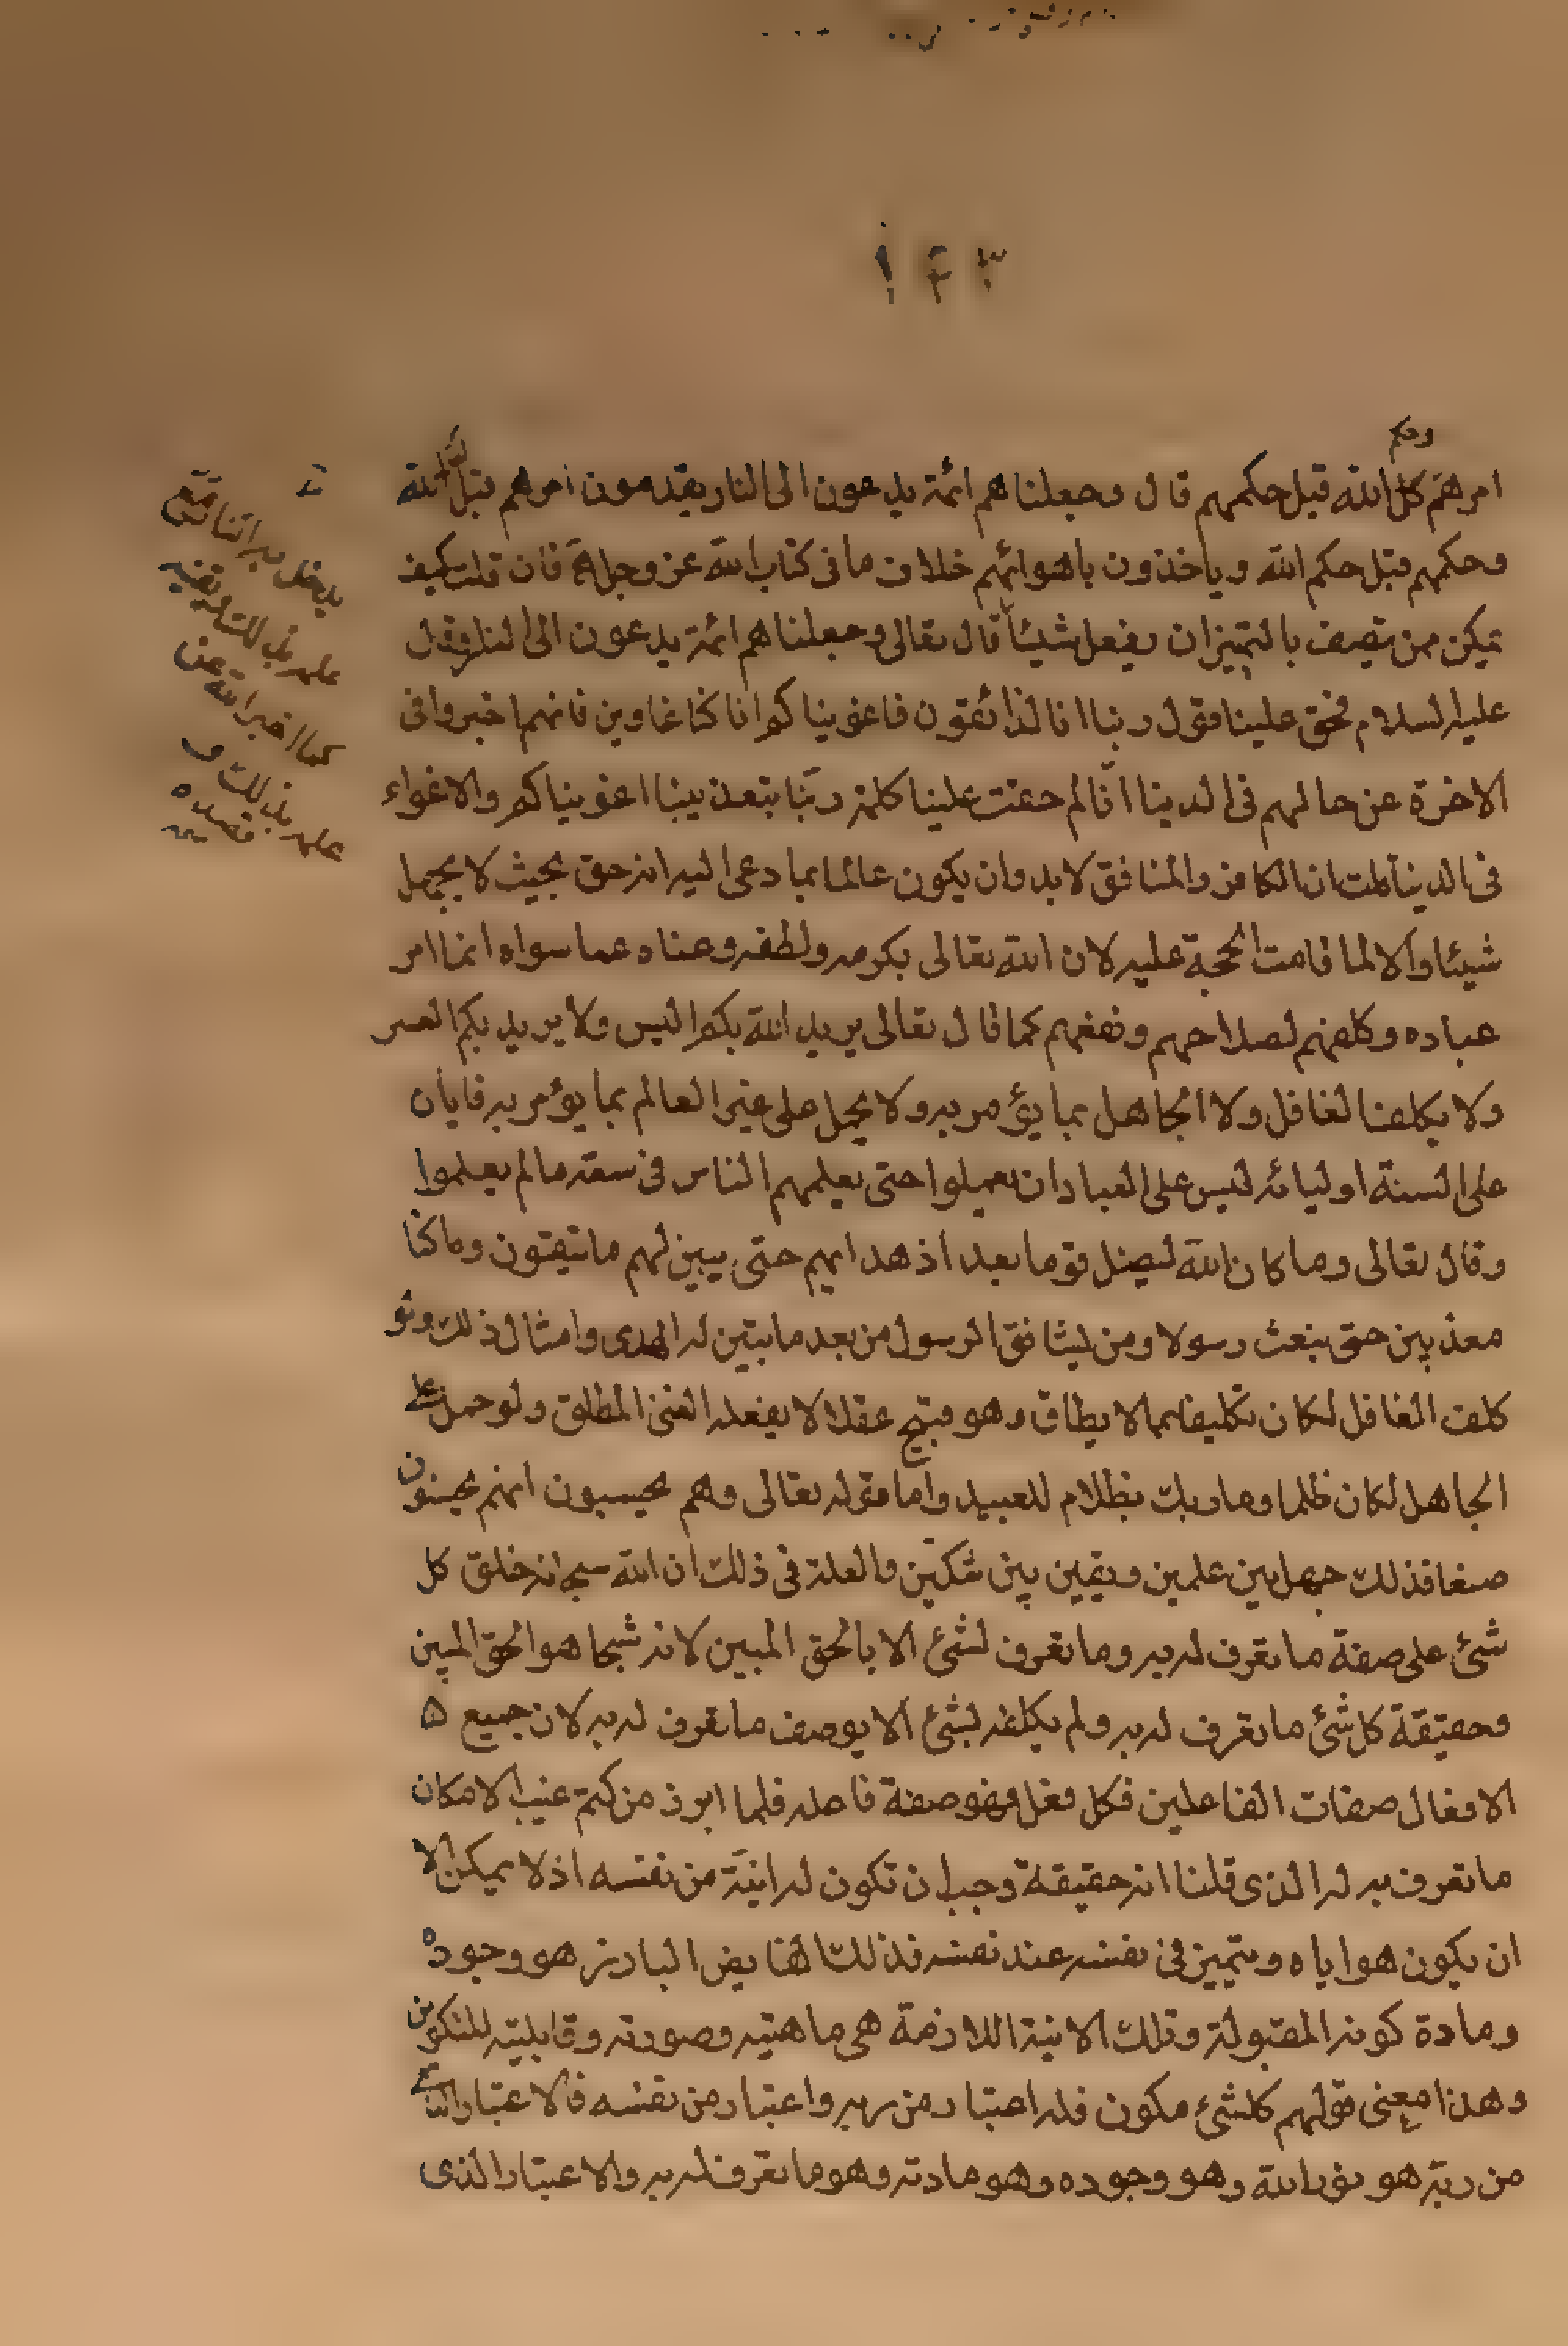 ١٢٣
وحكم
امرهم كل الله قبل حكمهم قال وجعلناهم ائمة يدعون الى النار يقدمون امرهم قبل امر الله
وحكمهم قبل حكم الله وياخذون باهوائهم خلاف ما فى كتاب الله عز وجل فان قلت كيف
يمكن ممن يتصف بالتميزان يفعل شيئا قال تعالى وجعلناهم ائمة يدعون الى النار وقال
عليه السلام فحق علينا قول ربنا انا لذائقون فاغويناكم انا كنا غاوين فانهم اخبروا فى
الاخرة عن حالهم فى الدنيا انا لم حقت علينا كلمة ربنا بتعذيبنا اغويناكم والاغواء
فى الدنيا قلت ان الكافر والمنافق لابد وان يكون عالما بما دعى اليه انه حق بحيث لا يجهل
شيئا والا لما قامت الحجة عليه لان الله تعالى بكرمه ولطفه وغناه عما سواه انما امر
عباده وكلفهم لصلاحهم ونفعهم كما قال تعالى يريد الله بكم اليسر ولا يريد بكم العسر
ولا يكلف الغافل ولا الجاهل بما يؤمر به ولا يحمل على غير العالم بما يؤمر به فابان
على السنة اوليائه ليس على العباد ان يعملوا حتى يعلمهم الناس فى سعة ما لم يعلموا
وقال تعالى وما كان الله ليضل قوما بعد اذ هداهم حتى يبين لهم ما يتقون وما كنا
معذبين حتى نبعث رسولا ومن يشاقق الرسول من بعد ما تبين له الهدى وامثال ذلك ولو
كلف الغافل لكان تكليفا بما لا يطاق وهو قبيح عقلا لا يفعله الغنى المطلق ولو حمل على
الجاهل لكان ظلما وما ربك بظلام للعبيد واما قوله تعالى وهم يحسبون انهم يحسنون
صنعا فذلك جهل بين علمين ويقين بين شكين والعلة فى ذلك ان الله سبحانه خلق كل
شئ على صفة ما تعرف له به وما تعرف لشئ الا بالحق المبين لانه سبحانه هو الحق المبين
وحقيقة كل شئ ما تعرف له به ولم يكلفه بشئ الا بوصف ما تعرف له به لان جميع
الافعال صفات الفاعلين فكل فعل فهو صفة فاعله فلما ابرز من كتم غيب الامكان
ما تعرف به له الذى قلنا انه حقيقة وجب ان تكون له انية من نفسه اذ لا يمكن الا
ان يكون هو اياه ويتميز فى نفسه عند نفسه فذلك الفايض البارز هو وجوده
ومادة كونه المقبولة وتلك الانية اللازمة هى ماهيته وصورته وقابليته للتكوين
وهذا معنى قولهم كل شئ مكون فله اعتبار من ربه واعتبار من نفسه فالاعتبار الذى
من ربه هو نور الله وهو وجوده وهو مادته وهو ما تعرف له به والاعتبار الذى
كما اخبر الله عن
علمه بذلك و
قصده